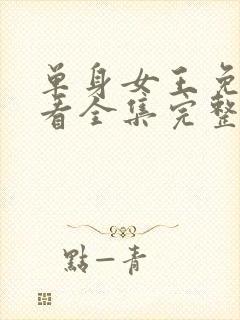 单身女王免
看全集完整
點一青